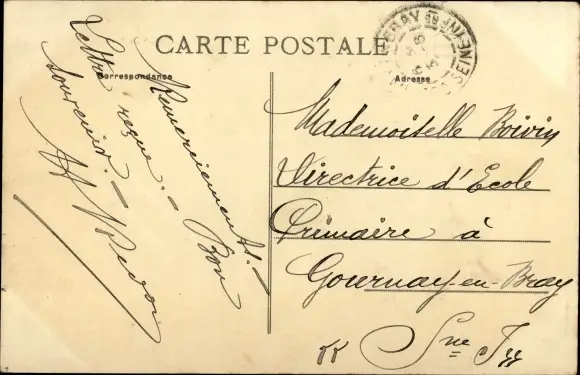 CARTE POSTALE
Correspondance
Adresse
Remerciements. —
Lettre reçue. — Bon
souvenir. —
Mademoiselle Boivin
Directrice d'Ecole
Primaire à
Gournay-en-Bray
Sne Irre